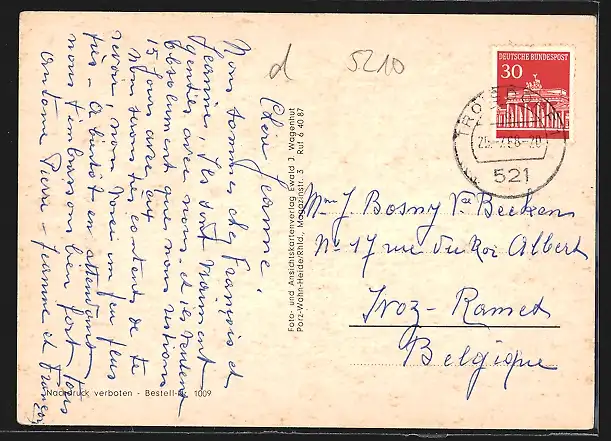 d 5210
Chère Jeanne,
Nous sommes chez François et
Jeannine, ils sont vraiment
gentils avec nous, et ils veulent
absolument que nous restions
15 jours avec eux
Nous serons très contents de te
revoir, nous
Tous - A bientôt en attendant
nous t'embrassons bien fort tous
Antoine Pierre - Jeanne et François
Foto- und Ansichtskartenverlag Ewald J. Wagenhut
Porz-Wahn-Heide/Rhld., Magazinstr. 3 Ruf 6 40 87
Nachdruck verboten - Bestell-Nr. 1009
DEUTSCHE BUNDESPOST
30
TROISDORF
25.-7.68-20
521
Mme J Bosny Ve Beckens
No 17 rue du Roi Albert
Ivoz-Ramet
Belgique